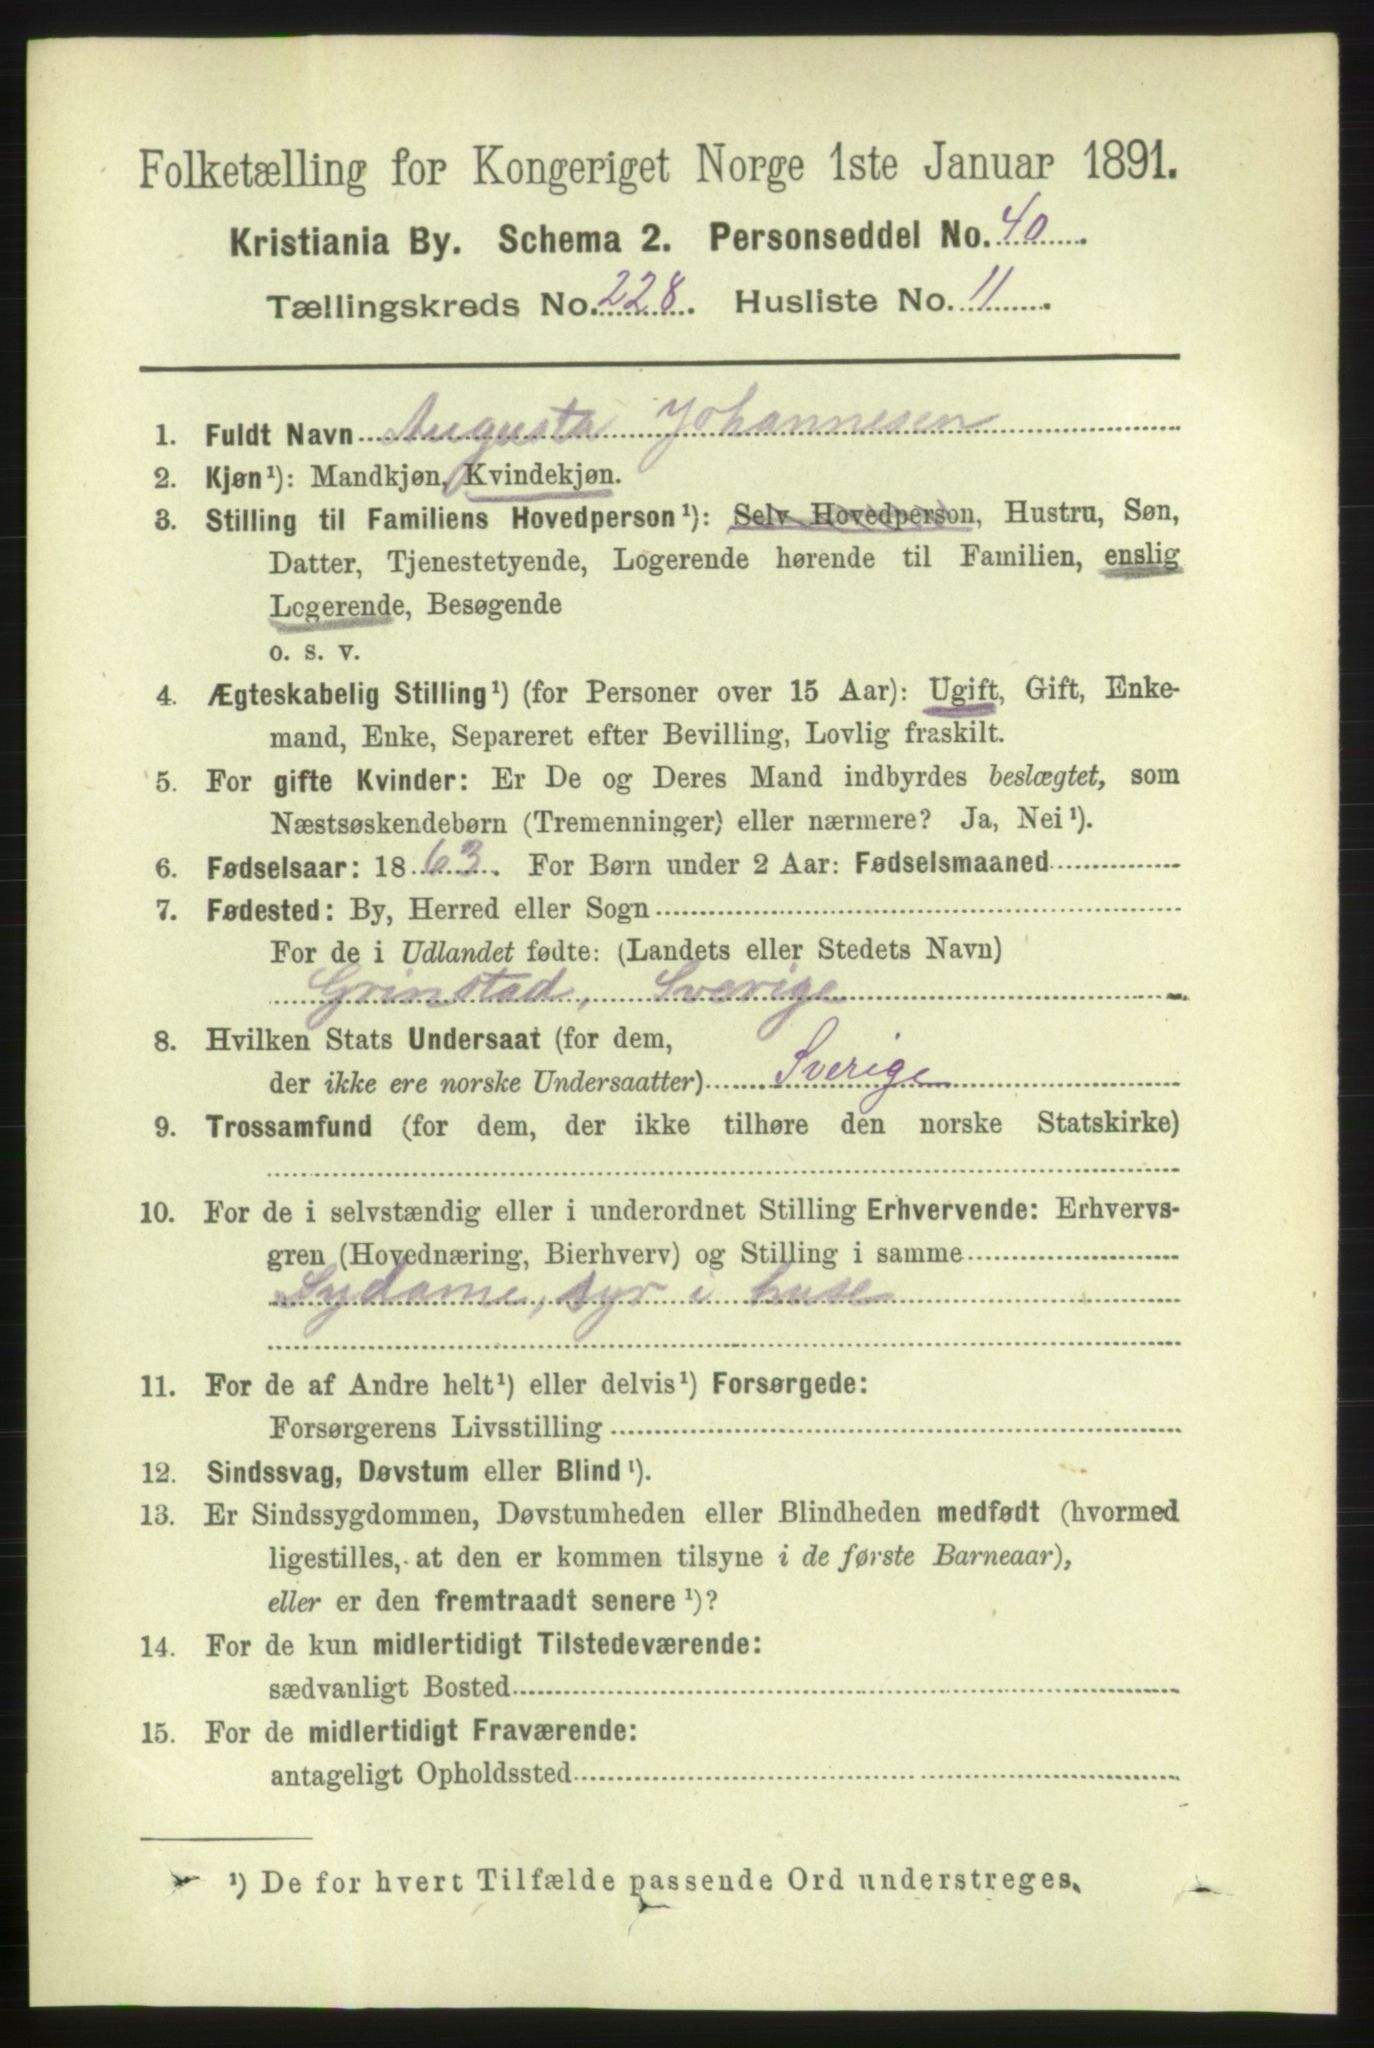 Folketælling for Kongeriget Norge 1ste Januar 1891.
Kristiania By. Schema 2. Personseddel No. 40.
Tællingskreds No. 228. Husliste No. 11.
1. Fuldt Navn Augusta Johannesen
2. Kjøn¹): Mandkjøn, Kvindekjøn.
3. Stilling til Familiens Hovedperson¹): Selv Hovedperson, Hustru, Søn,
Datter, Tjenestetyende, Logerende hørende til Familien, enslig
Logerende, Besøgende
o. s. v.
4. Ægteskabelig Stilling¹) (for Personer over 15 Aar): Ugift, Gift, Enke-
mand, Enke, Separeret efter Bevilling, Lovlig fraskilt.
5. For gifte Kvinder: Er De og Deres Mand indbyrdes beslægtet, som
Næstsøskendebørn (Tremenninger) eller nærmere? Ja, Nei¹).
6. Fødselsaar: 1863. For Børn under 2 Aar: Fødselsmaaned
7. Fødested: By, Herred eller Sogn
For de i Udlandet fødte: (Landets eller Stedets Navn)
Grinstad, Sverige
8. Hvilken Stats Undersaat (for dem,
der ikke ere norske Undersaatter) Sverige
9. Trossamfund (for dem, der ikke tilhøre den norske Statskirke)
10. For de i selvstændig eller i underordnet Stilling Erhvervende: Erhvervs-
gren (Hovednæring, Bierhverv) og Stilling i samme
Sydame, syr i huse
11. For de af Andre helt¹) eller delvis¹) Forsørgede:
Forsørgerens Livsstilling
12. Sindssvag, Døvstum eller Blind¹).
13. Er Sindssygdommen, Døvstumheden eller Blindheden medfødt (hvormed
ligestilles, at den er kommen tilsyne i de første Barneaar),
eller er den fremtraadt senere¹)?
14. For de kun midlertidigt Tilstedeværende:
sædvanligt Bosted
15. For de midlertidigt Fraværende:
antageligt Opholdssted
¹) De for hvert Tilfælde passende Ord understreges.